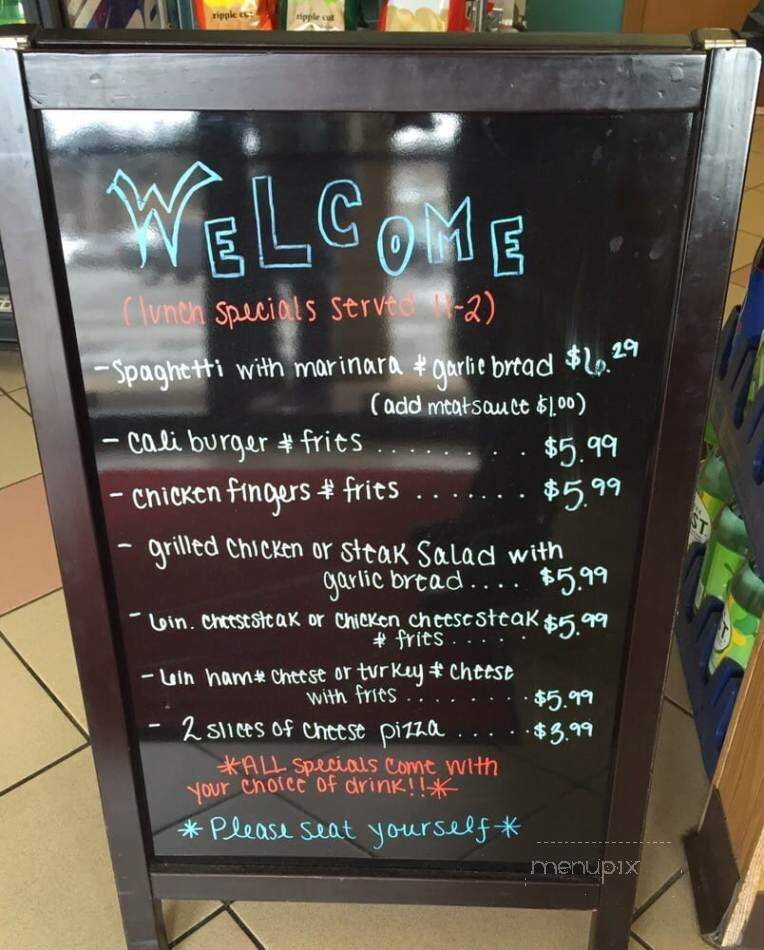 ripple cut
ripple cut
WELCOME
(lunch specials served 11-2)
- Spaghetti with marinara & garlic bread $6.29
(add meatsauce $1.00)
- cali burger & fries ......... $5.99
- chicken fingers & fries ....... $5.99
- grilled chicken or steak Salad with
garlic bread .... $5.99
- 6in. cheesesteak or chicken cheesesteak $5.99
& fries .....
- 6in ham & cheese or turkey & cheese
with fries ....... $5.99
- 2 slices of cheese pizza ...... $3.99
*ALL specials come with
your choice of drink!!*
* Please seat yourself *
menupix